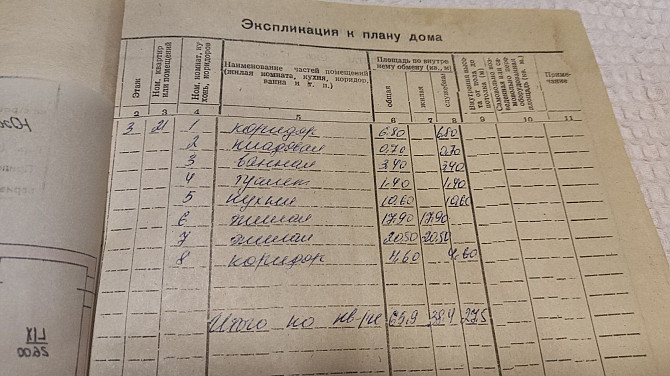 Экспликация к плану дома
Этаж
Ном. квартир или помещений
Ном. комнат, кухонь, коридоров
Наименование частей помещений (жилая комната, кухня, коридор, ванна и т. п.)
Площадь по внутреннему обмеру (кв., м)
общая
жилая
служебная
Внутренняя высота от пола до потолка (м)
Самовольно площадь (кв. м.)
Примечание
2 3 4 5 6 7 8 9 10 11
3 21 1 коридор 6.80 6.80
2 кладовая 0,70 0,70
3 ванная 3.40 3.40
4 туалет 1.40 1.40
5 кухня 10,60 10,60
6 жилая 17.90 17.90
7 жилая 20.50 20.50
8 коридор 4.60 4.60
Итого по кв-ре 65,9 38,4 27,5